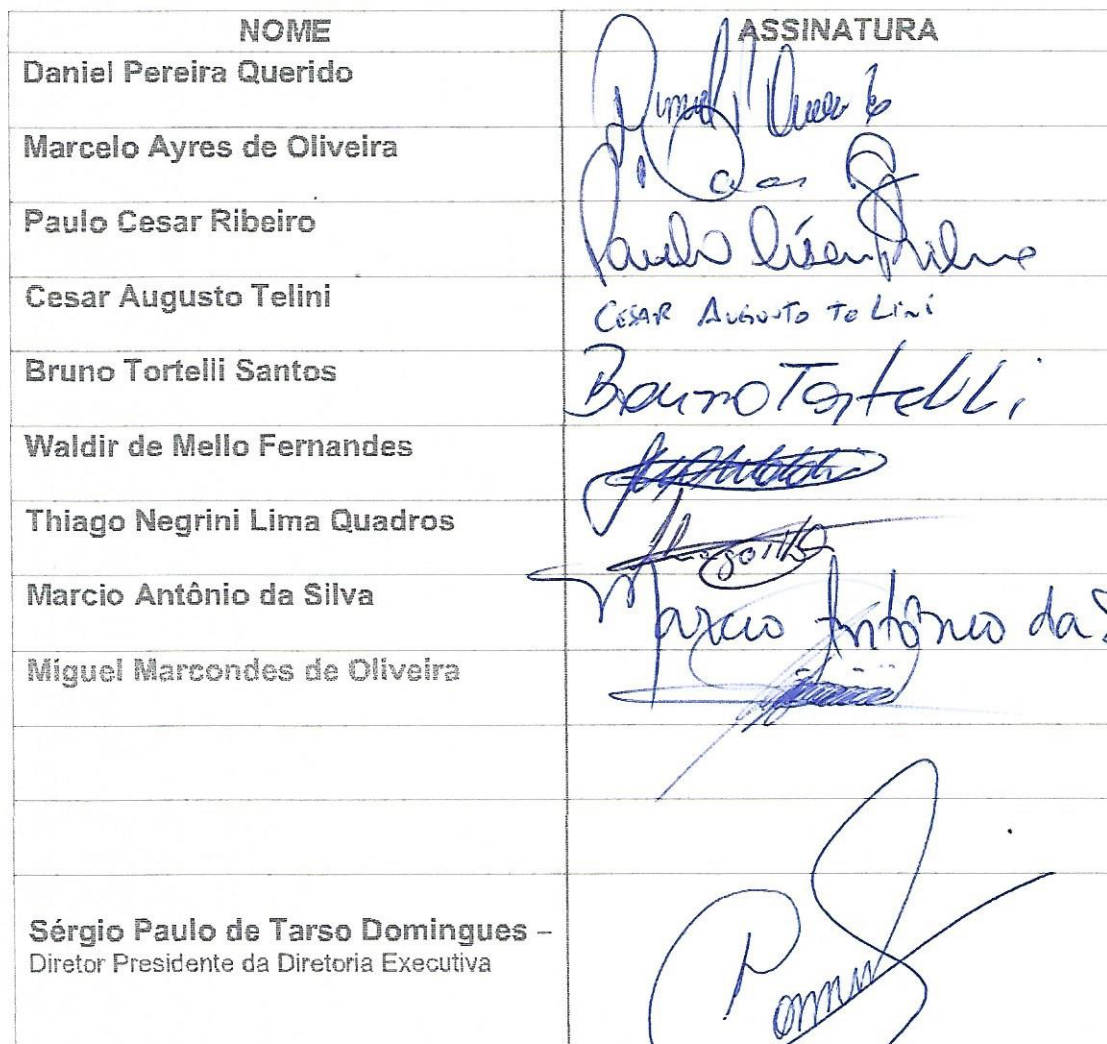 NOME ASSINATURA
Daniel Pereira Querido
Marcelo Ayres de Oliveira
Paulo Cesar Ribeiro Paulo César Ribeiro
Cesar Augusto Telini CESAR AUGUSTO TELINI
Bruno Tortelli Santos Bruno Tortelli
Waldir de Mello Fernandes
Thiago Negrini Lima Quadros
Marcio Antônio da Silva Marcio Antônio da S
Miguel Marcondes de Oliveira
Sérgio Paulo de Tarso Domingues –
Diretor Presidente da Diretoria Executiva